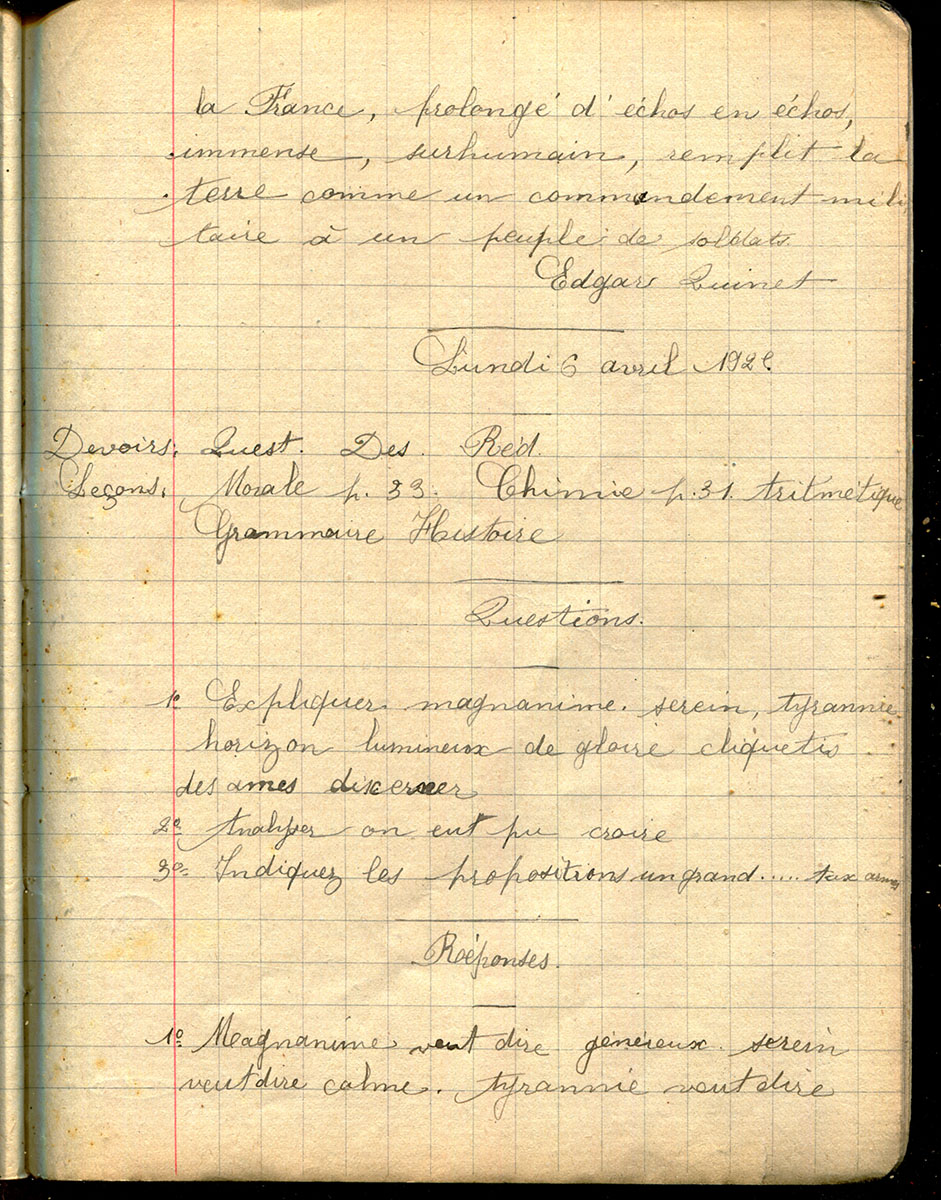 la France, prolongé d'échos en échos,
immense, surhumain, remplit la
terre comme un commandement mili
taire à un peuple de soldats.
Edgar Quinet
Lundi 6 avril
Devoirs: Quest. Des. Réd.
Leçons: Morale p. 33. Chimie p. 31. tritmétique
Grammaire Histoire
Questions.
1º Expliquer magnanime. serein, tyrannie
horizon lumineux de gloire cliquetis
des ames discerner
2º Analyser on eut pu croire
3º Indiquez les propositions un grand..... aux armes
Réponses.
1º Magnanime veut dire généreux. serein
veut dire calme. tyrannie veut dire